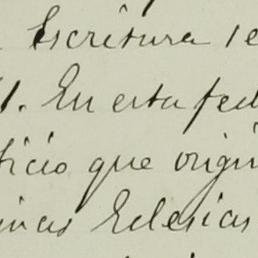 Escritura 1e
1. En esta fech
ficio que origin
incias Eclesias